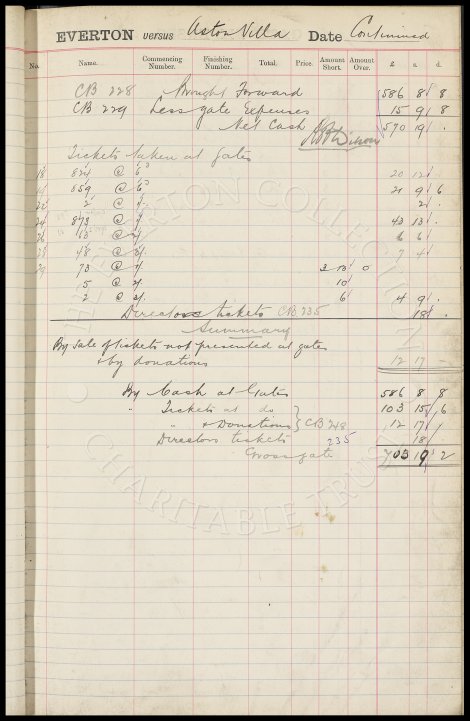 EVERTON versus Aston Villa Date Continued
No. Name. Commencing Number. Finishing Number. Total. Price. Amount Short. Amount Over. £ s. d.
CB 228 Brought Forward 586 8 8
CB 229 Less gate Expenses 15 9 8
Net Cash 570 19 .
Tickets taken at gates
18 824 @ 6D 20 12 .
859 @ 6D 21 9 6
22 2 @ 1/- 2 .
24 873 @ 43 13 .
26 63 @ 6 6 .
28 48 @ 3/. 7 4
29 73 @ 3 13 0
5 @ 10
2 @ 3/. 6 4 9 .
Directors tickets CB 235 18 .
Summary
By Sale of tickets not presented at gates
& by donations 12 17 -
By Cash at Gates 586 8 8
" Tickets at do 103 15 6
" & Donations CB 248 12 17
Directors tickets 235 18
Gross gate 703 19 2
THE EVERTON COLLECTION
CHARITABLE TRUST